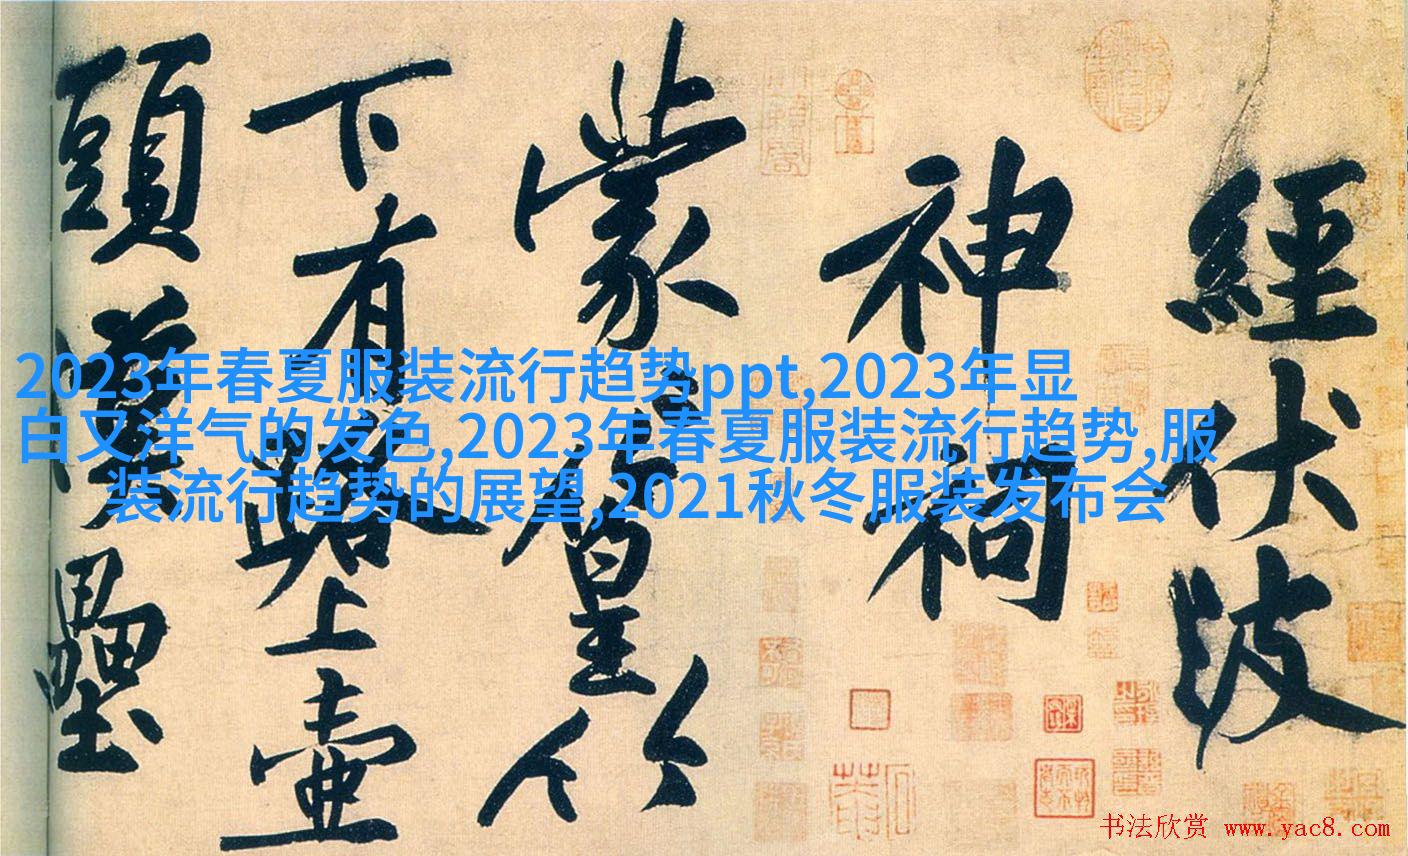 經伏波
神祠
蒙〻篁竹
下有路上壺
頭漢壘
2023年春夏服装流行趋势ppt,2023年显
白又洋气的发色,2023年春夏服装流行趋势,服
装流行趋势的展望,2021秋冬服装发布会
书法欣赏 www.yac8.com